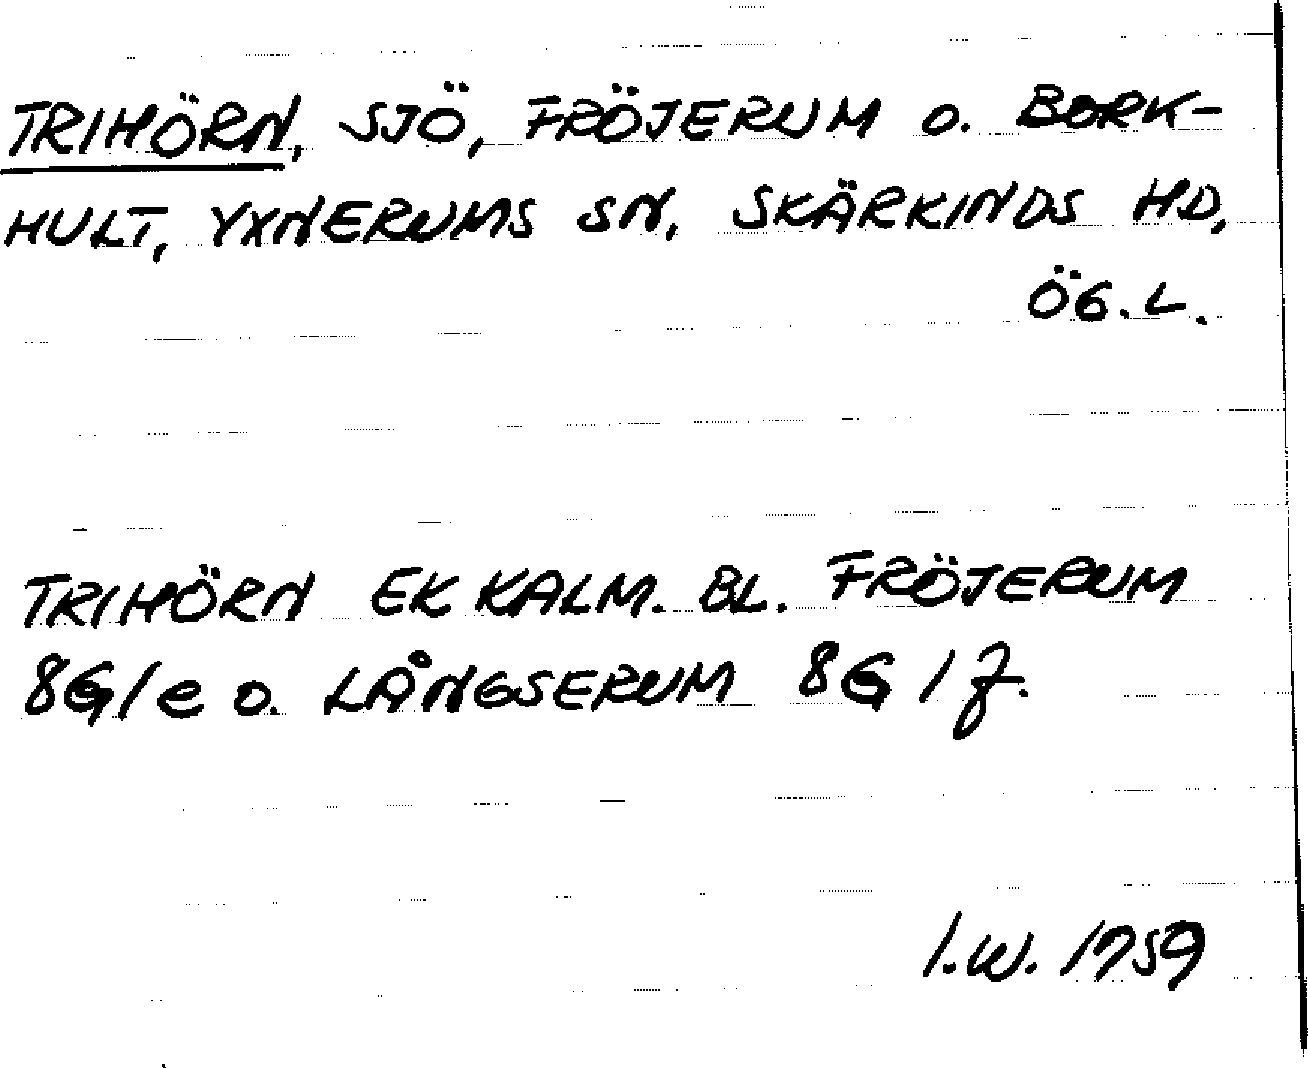 TRIHÖRN, SJÖ, FRÖJERUM o. BORK-
HULT, YXNERUMS SN, SKÄRKINDS HD,
ÖG.L.
TRIHÖRN EK KALM. BL. FRÖJERUM
8G/e o. LÅNGSERUM 8G/f.
I.W. 1959